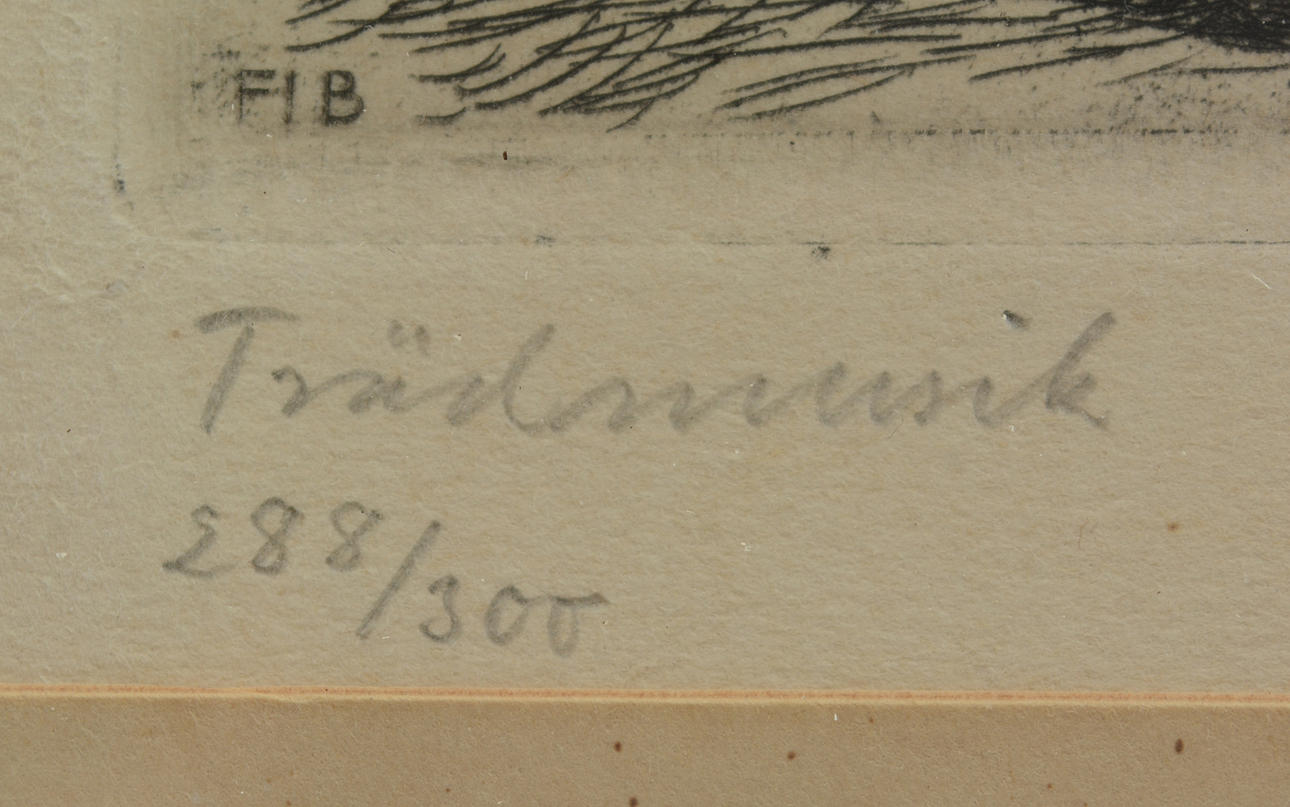 FIB
Trädmusik
288/300